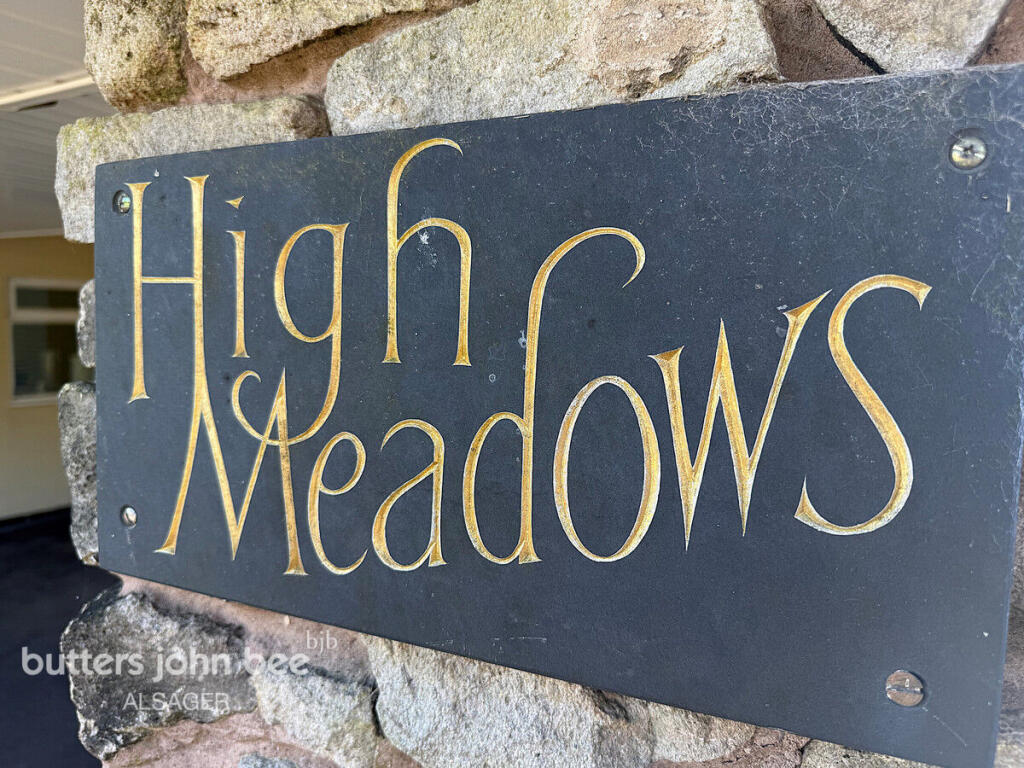 High
Meadows
bjb
butters john bee
ALSAGER